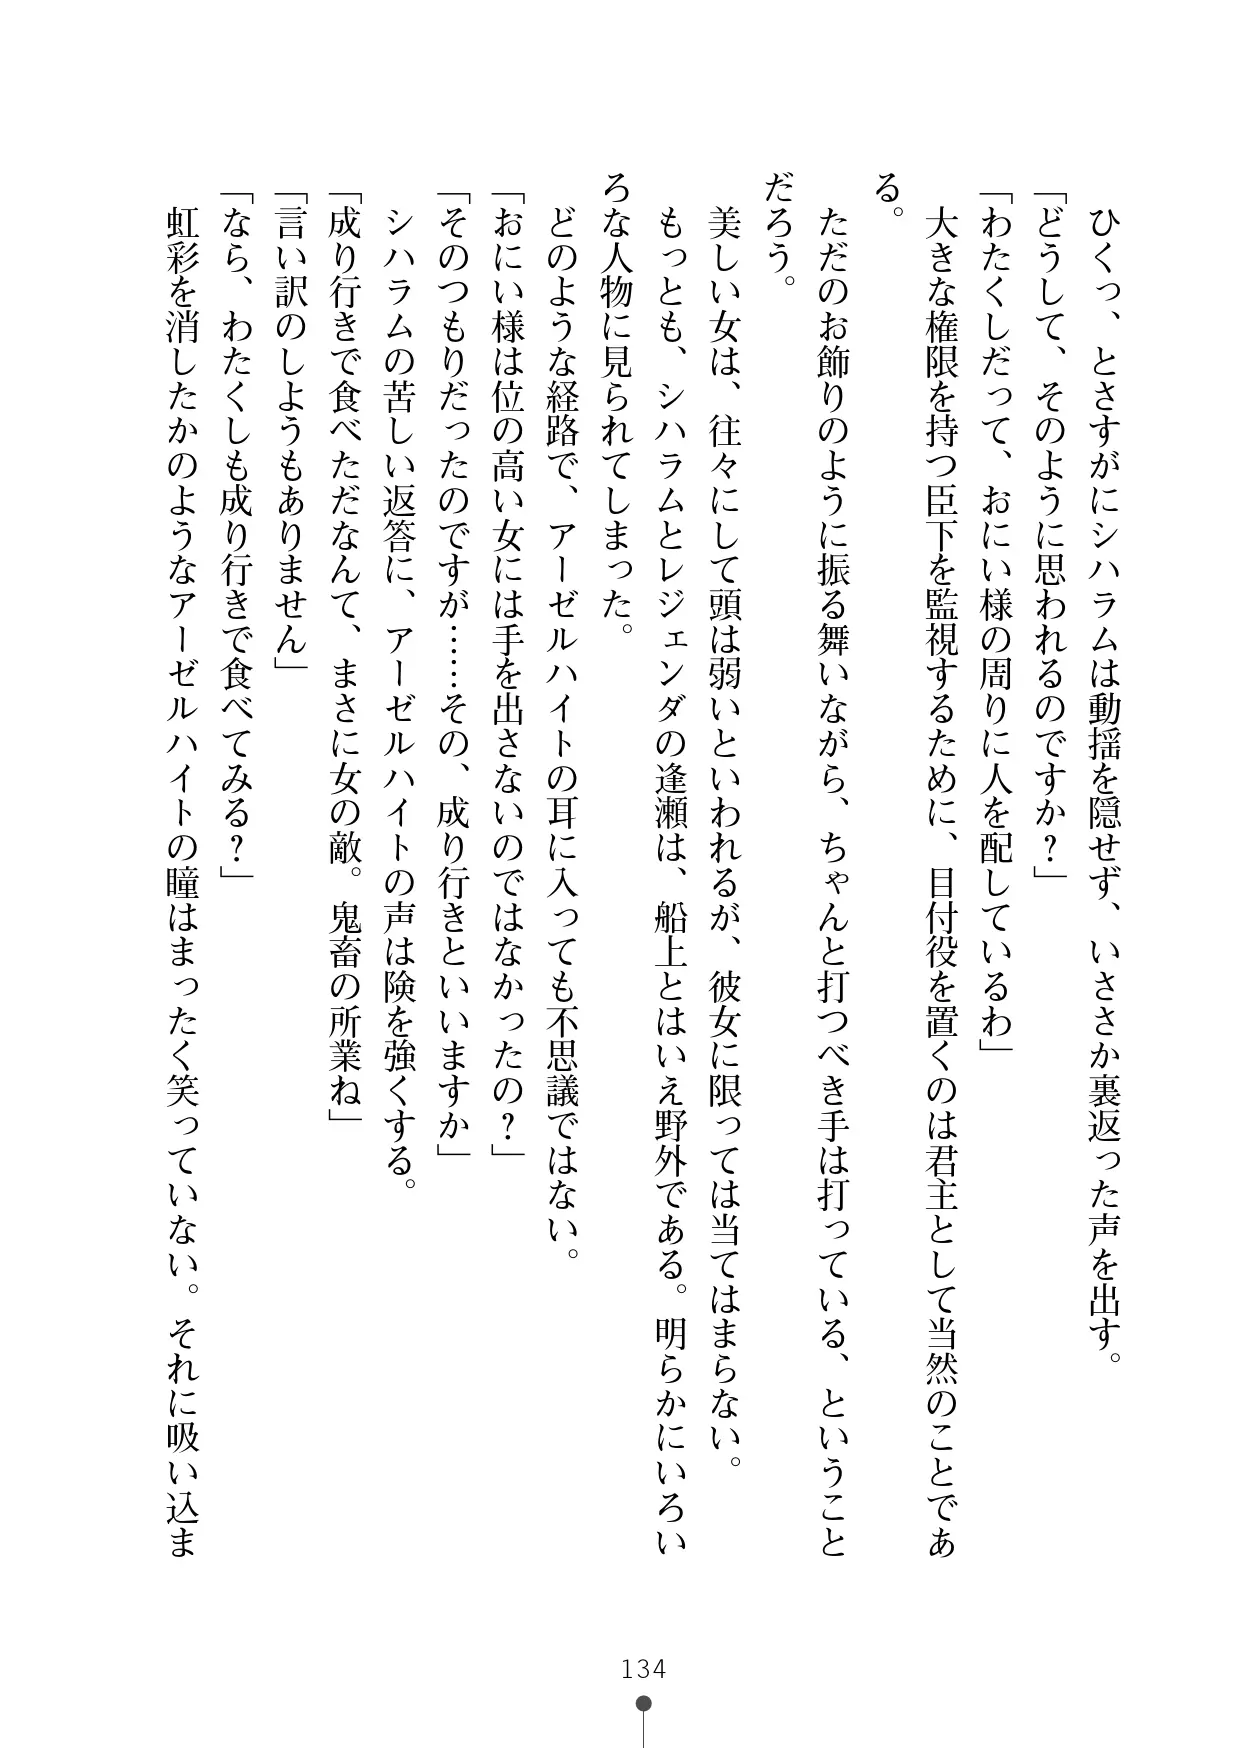 ひくっ、とさすがにシハラムは動揺を隠せず、いささか裏返った声を出す。
「どうして、そのように思われるのですか？」
「わたくしだって、おにい様の周りに人を配しているわ」
　大きな権限を持つ臣下を監視するために、目付役を置くのは君主として当然のことであ
る。
　ただのお飾りのように振る舞いながら、ちゃんと打つべき手は打っている、ということ
だろう。
　美しい女は、往々にして頭は弱いといわれるが、彼女に限っては当てはまらない。
　もっとも、シハラムとレジェンダの逢瀬は、船上とはいえ野外である。明らかにいろい
ろな人物に見られてしまった。
　どのような経路で、アーゼルハイトの耳に入っても不思議ではない。
「おにい様は位の高い女には手を出さないのではなかったの？」
「そのつもりだったのですが……その、成り行きといいますか」
　シハラムの苦しい返答に、アーゼルハイトの声は険を強くする。
「成り行きで食べただなんて、まさに女の敵。鬼畜の所業ね」
「言い訳のしようもありません」
「なら、わたくしも成り行きで食べてみる？」
　虹彩を消したかのようなアーゼルハイトの瞳はまったく笑っていない。それに吸い込ま
134